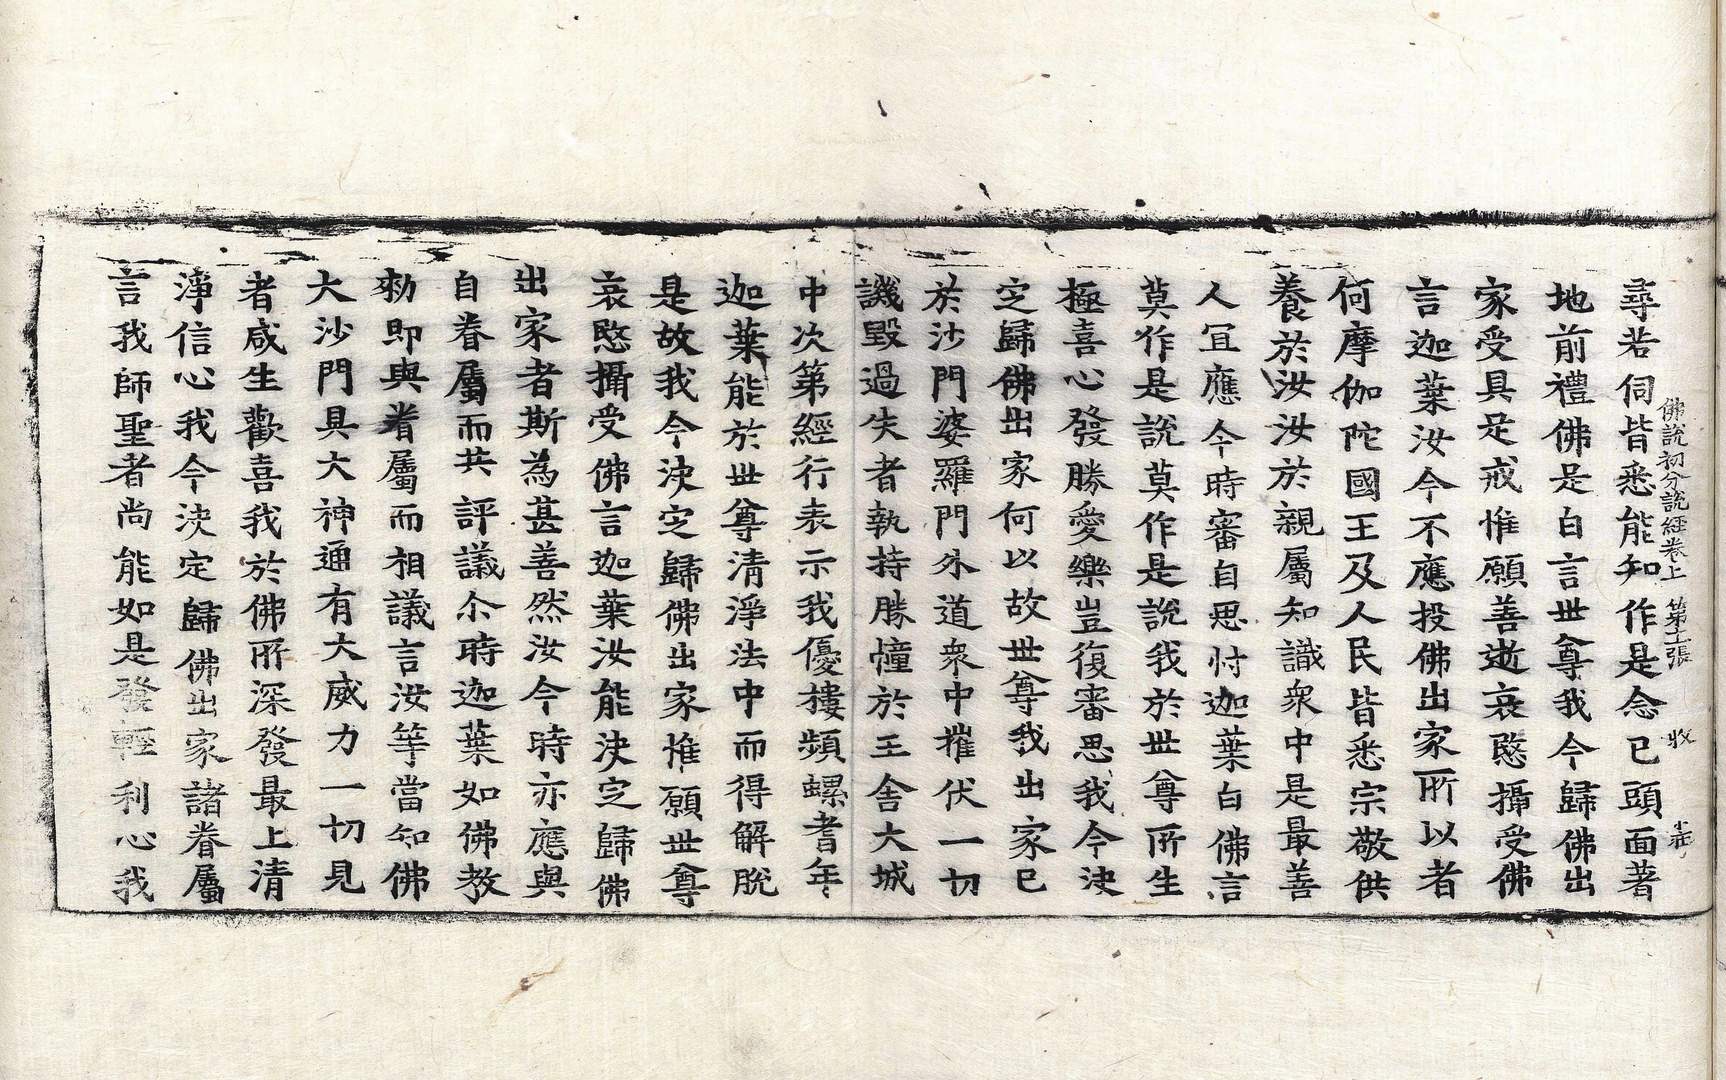 佛說初分說經卷上 第十二張 收
尋若伺皆悉能知作是念已頭面著
地前禮佛足白言世尊我今歸佛出
家受具足戒惟願善逝哀愍攝受佛
言迦葉汝今不應投佛出家所以者
何摩伽陀國王及人民皆悉宗敬供
養於汝汝於親屬知識衆中是最善
人冝應今時審自思忖迦葉白佛言
莫作是說莫作是說我於世尊所生
極喜心發勝愛樂豈復審思我今決
定歸佛出家何以故世尊我出家已
於沙門婆羅門外道衆中摧伏一切
譏毀過失者執持勝幢於王舍大城
中次第經行表示我優樓頻螺耆年
迦葉能於世尊清淨法中而得解脫
是故我今決定歸佛出家惟願世尊
哀愍攝受佛言迦葉汝能決定歸佛
出家者斯為甚善然汝今時亦應與
自眷屬而共評議尒時迦葉如佛教
勑即與眷屬而相議言汝等當知佛
大沙門具大神通有大威力一切見
者咸生歡喜我於佛所深發最上清
淨信心我今決定歸佛出家諸眷屬
言我師聖者尚能如是發輕利心我